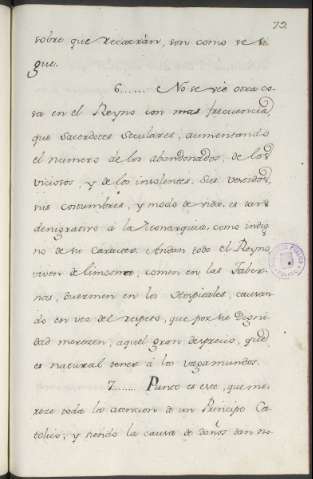 72.
sobre que recaerán, son como se si-
gue.
6....... No se vé otra co-
sa en el Reyno con mas frecuencia,
que Sacerdotes Seculares, aumentando
el numero de los abandonados, de los
viciosos, y de los insolentes. Sus
sus costumbres, y modo de vida es tan
denigrativo á la Monarquia, como indig-
no de su Caracter. Andan todo el Reyno
viven de limosna, comen en las Taber-
nas, duermen en los Hospitales, causan-
do en vez del respeto, que por su Digni-
dad merecen, aquel gran desprecio, que
es natural tener á los vagamundos.
7....... Punto es este, que me-
rece toda la atencion de un Principe Ca-
tolico, y siendo la causa de daños tan no-